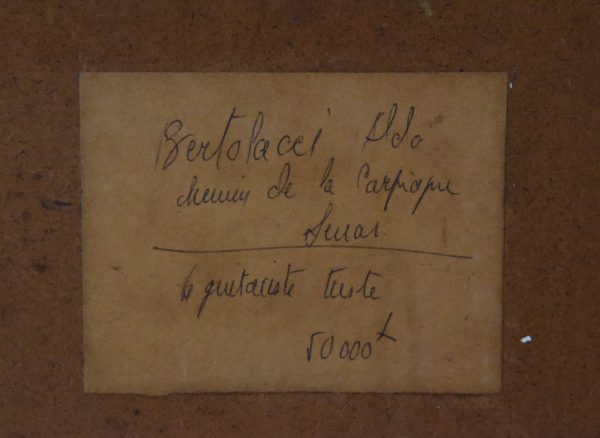 Bertolacci Aldo
chemin de la Carpiagne
Senas
le guitariste triste
50 000 F